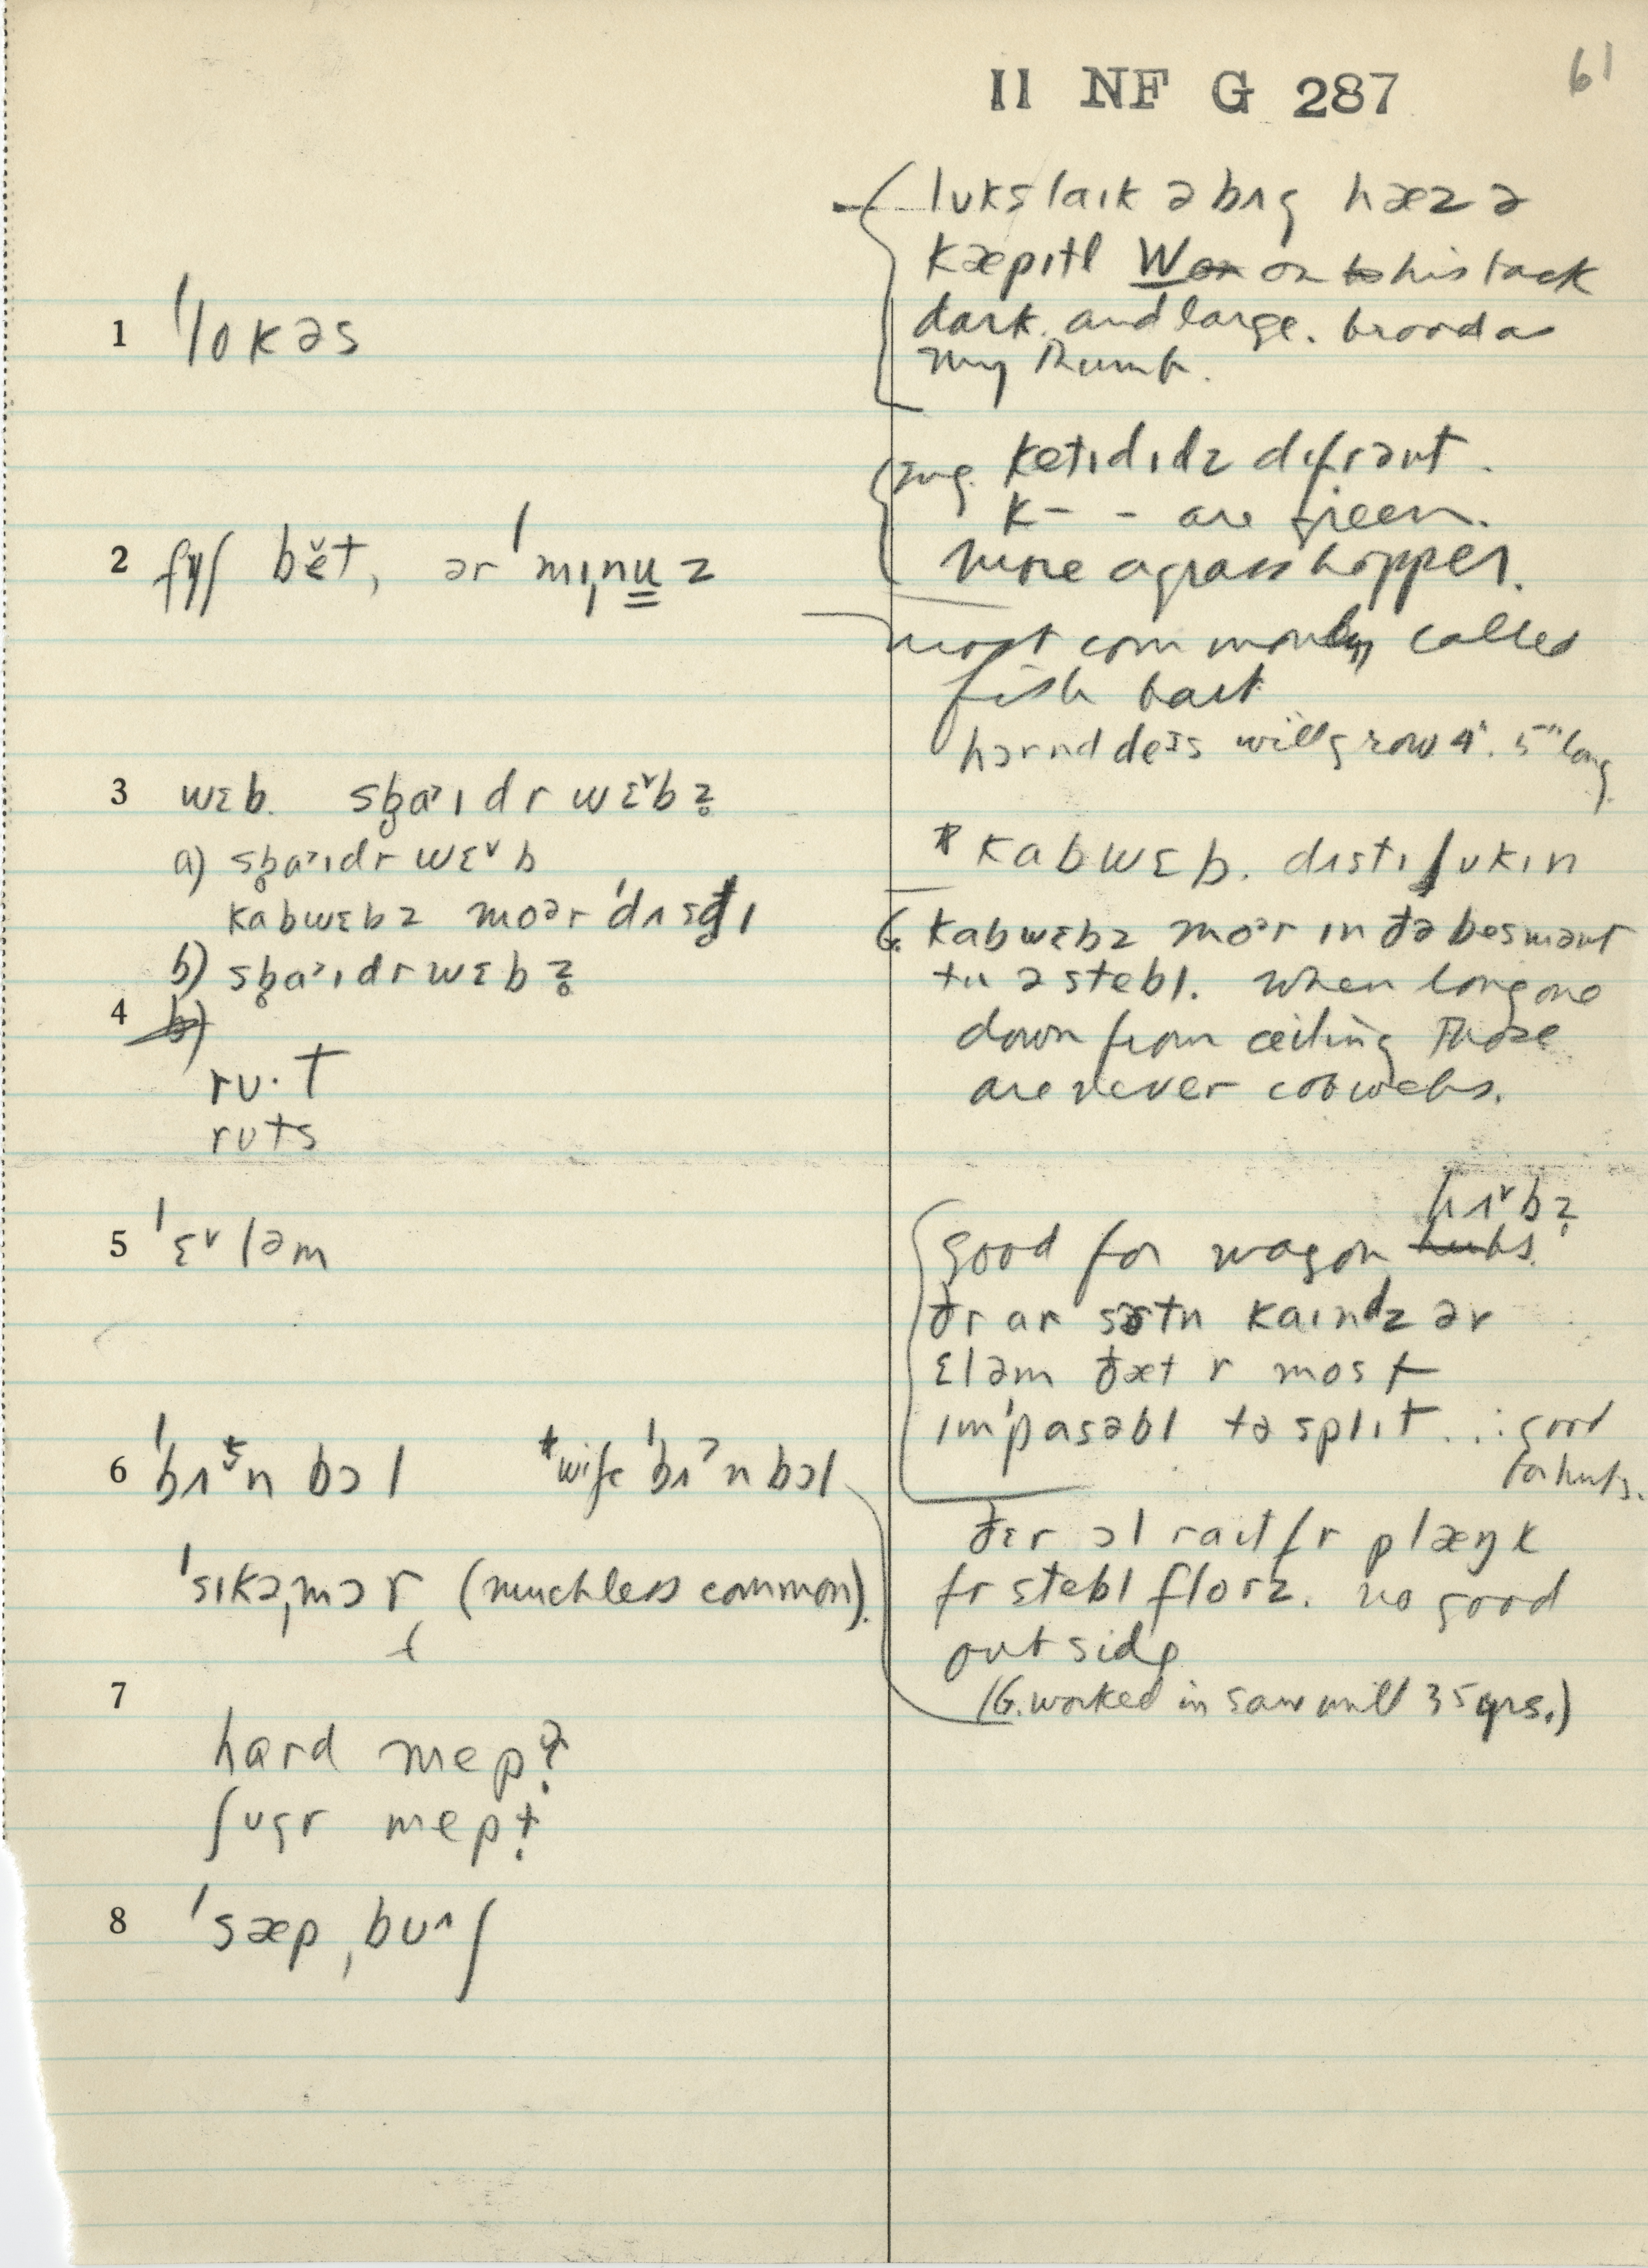 II NF G 287
61
lʊks laɪk ə bɪg hæz ə
kæpɪtl W on his back
dark. and large. broad as
my thumb.
1 ˈlokəs
ketɪdɪdz dɪfrənt.
K- - are green.
more a grasshopper.
2 fɪʃ bět, ər ˈmɪˌnuz
most commonly called
fish bait
hɔrnd deɪs will grow 4". 5" long
3 wɛb. sb̥aˑɪdr wɛˇbz̥
a) sb̥aˑɪdr wɛˇb
kabwɛbz moər ˈdʌsd̥ɪ
b) sb̥aˑɪdr wɛbz̥
* kabwɛb. dɪstɪʃʊkɪn
G. kabwɛbz moər ɪn ðə besmənt
tu ə stebl. when long one
down from ceiling Those
are never cobwebs.
4
rʊ·t
rʊts
5 ˈɛˇləm
good for wagon hʌˇbz̥
ðr ar sɜtn kaɪndz əv
ɛləm ðæt r most
ɪmˈpasəbl tə splɪt ∴ good
for hubs.
6 ˈbʌtn bɔl *wife ˈbʌˀn bɔl
ˈsɪkəˌmɔr (much less common).
ðɛr ɔl raɪt fr plæŋk
fr stebl florz. no good
outside
(G. worked in sawmill 35 yrs.)
7
hard mepl̩
ʃʊgr mepl̩
8 ˈsæpˌbʊˆʃ